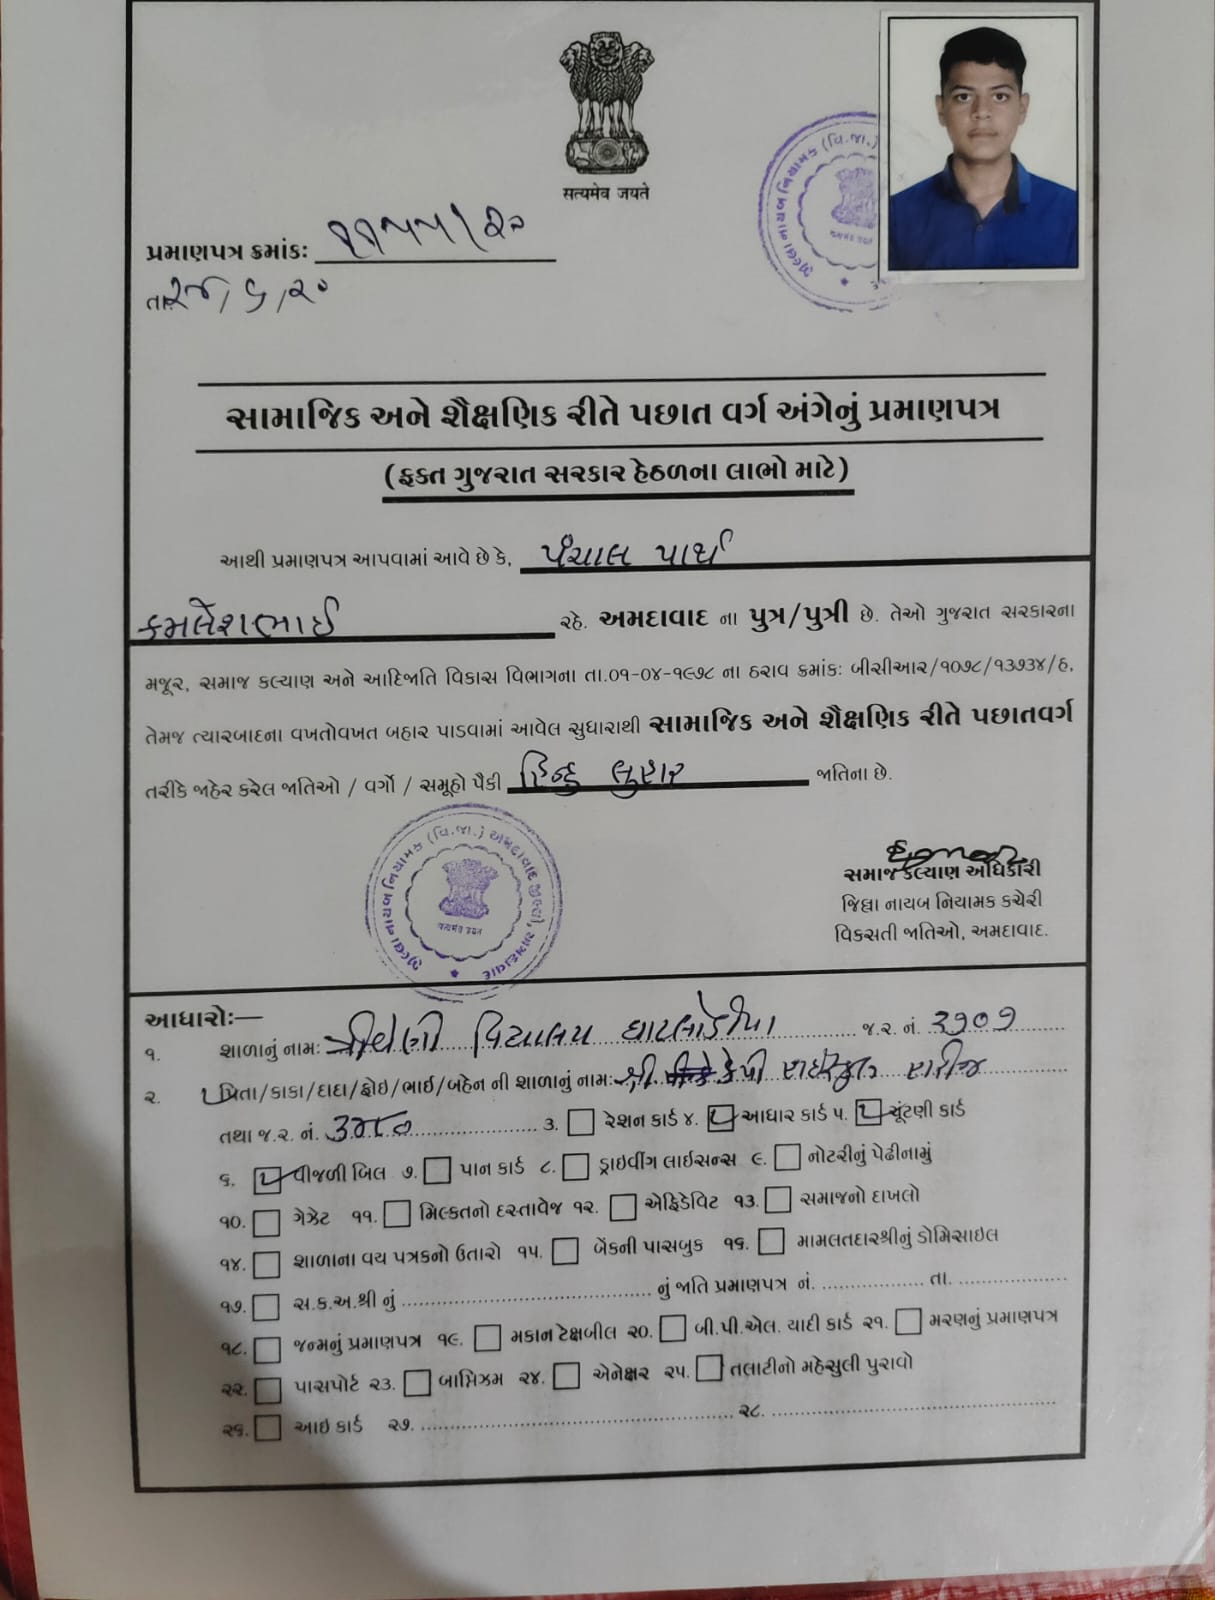 सत्यमेव जयते
પ્રમાણપત્ર ક્રમાંક:
તા. ૨૪/૬/૨૦
સામાજિક અને શૈક્ષણિક રીતે પછાત વર્ગ અંગેનું પ્રમાણપત્ર
(ફક્ત ગુજરાત સરકાર હેઠળના લાભો માટે)
આથી પ્રમાણપત્ર આપવામાં આવે છે કે, પંચાલ પાર્થ
કમલેશભાઈ રહે. અમદાવાદ ના પુત્ર/પુત્રી છે. તેઓ ગુજરાત સરકારના
મજૂર, સમાજ કલ્યાણ અને આદિજાતિ વિકાસ વિભાગના તા.૦૧-૦૪-૧૯૭૮ ના ઠરાવ ક્રમાંક: બીસીઆર/૧૦૭૮/૧૩૭૩૪/હ,
તેમજ ત્યારબાદના વખતોવખત બહાર પાડવામાં આવેલ સુધારાથી સામાજિક અને શૈક્ષણિક રીતે પછાતવર્ગ
તરીકે જાહેર કરેલ જાતિઓ / વર્ગો / સમૂહો પૈકી હિન્દુ લુહાર જાતિના છે.
જીલ્લા નાયબ નિયામક (વિ.જા.) અમદાવાદ જીલ્લો, અમદાવાદ
સમાજ કલ્યાણ અધિકારી
જિલ્લા નાયબ નિયામક કચેરી
વિકસતી જાતિઓ, અમદાવાદ.
આધારોઃ—
૧. શાળાનું નામ: ત્રીવેણી વિદ્યાલય ઘાટલોડીયા જ.ર. નં. ૨૭૦૭
૨. પિતા/કાકા/દાદા/ફોઇ/ભાઈ/બહેન ની શાળાનું નામ: શ્રી
તથા જ.ર. નં. ૩. રેશન કાર્ડ ૪. આધાર કાર્ડ ૫. ચૂંટણી કાર્ડ
૬. વીજળી બિલ ૭. પાન કાર્ડ ૮. ડ્રાઇવીંગ લાઇસન્સ ૯. નોટરીનું પેઢીનામું
૧૦. ગેઝેટ ૧૧. મિલ્કતનો દસ્તાવેજ ૧૨. એફિડેવિટ ૧૩. સમાજનો દાખલો
૧૪. શાળાના વય પત્રકનો ઉતારો ૧૫. બેંકની પાસબુક ૧૬. મામલતદારશ્રીનું ડોમિસાઇલ
૧૭. સ.ક.અ.શ્રી નું ........ નું જાતિ પ્રમાણપત્ર નં. ........ તા. ........
૧૮. જન્મનું પ્રમાણપત્ર ૧૯. મકાન ટેક્ષબીલ ૨૦. બી.પી.એલ. યાદી કાર્ડ ૨૧. મરણનું પ્રમાણપત્ર
૨૨. પાસપોર્ટ ૨૩. બાપ્તિઝમ ૨૪. એનેક્ષર ૨૫. તલાટીનો મહેસુલી પુરાવો
૨૬. આઇ કાર્ડ ૨૭. ........ ૨૮. ........